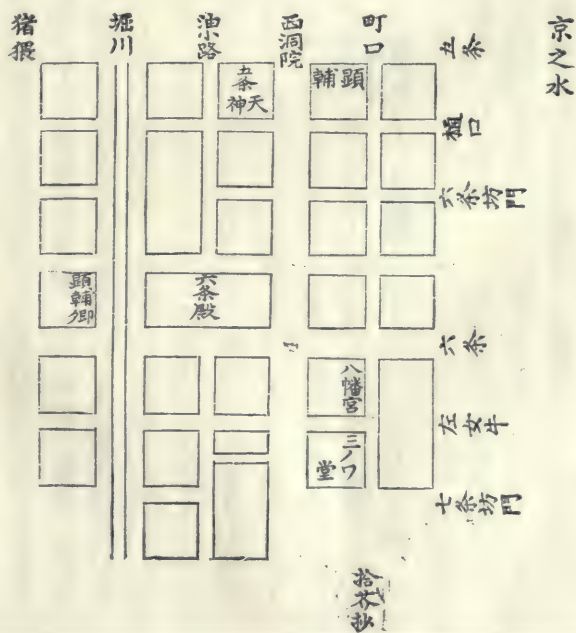 京之水
五条
樋口
六条坊門
六条
左女牛
七条坊門
町口
西洞院
油小路
堀川
猪猥
顕輔
五条天神
六条殿
顕輔卿
八幡宮
三ノワ堂
拾芥抄